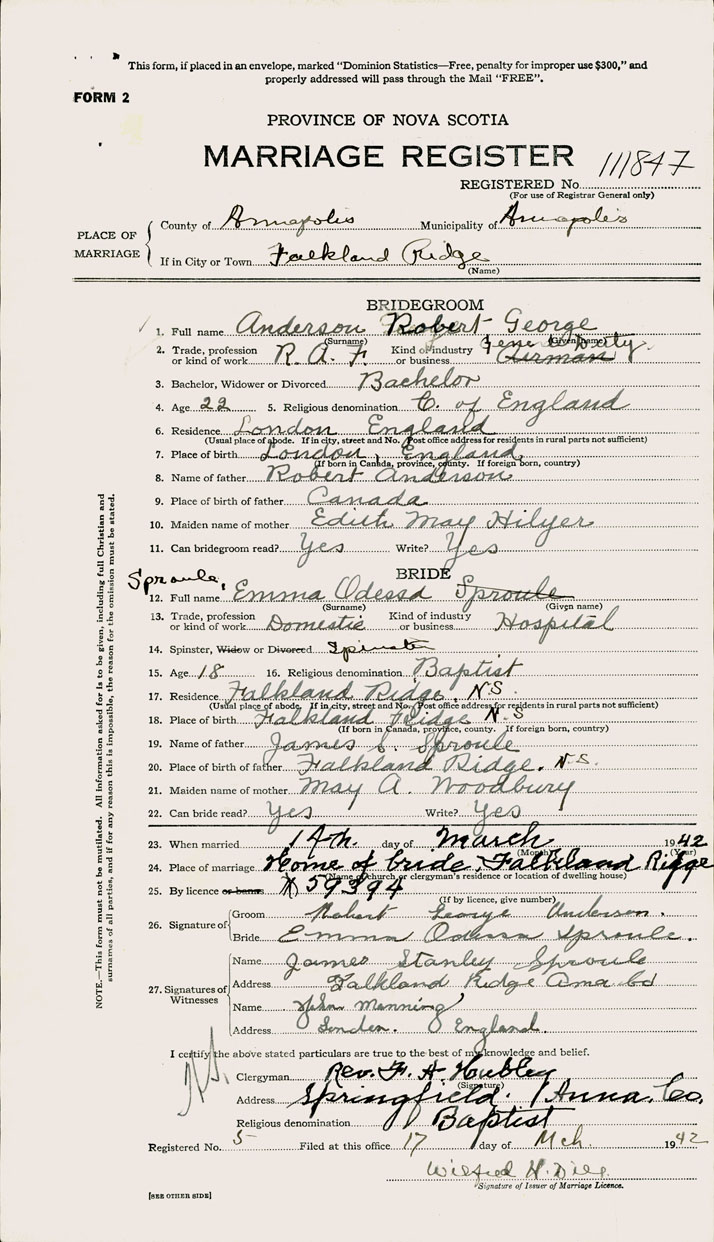 This form, if placed in an envelope, marked "Dominion Statistics—Free, penalty for improper use $300," and
properly addressed will pass through the Mail "FREE".
FORM 2
PROVINCE OF NOVA SCOTIA
MARRIAGE REGISTER
111847
REGISTERED No.
(For use of Registrar General only)
PLACE OF MARRIAGE
County of Annapolis Municipality of Annapolis
If in City or Town Falkland Ridge
(Name)
BRIDEGROOM
1. Full name Anderson Robert George
(Surname) (Given name)
2. Trade, profession or kind of work R. A. F. Kind of industry or business Gene. Duty. Airman
3. Bachelor, Widower or Divorced Bachelor
4. Age 22 5. Religious denomination C. of England
6. Residence London England
(Usual place of abode. If in city, street and No. Post office address for residents in rural parts not sufficient)
7. Place of birth London, England,
(If born in Canada, province, county. If foreign born, country)
8. Name of father Robert Anderson
9. Place of birth of father Canada
10. Maiden name of mother Edith May Hilyer
11. Can bridegroom read? Yes Write? Yes
BRIDE
Sproule,
12. Full name Emma Odessa Sproule
(Surname) (Given name)
13. Trade, profession or kind of work Domestic Kind of industry or business Hospital
14. Spinster, Widow or Divorced Spinster
15. Age 18 16. Religious denomination Baptist
17. Residence Falkland Ridge, N.S.
(Usual place of abode. If in city, street and No. Post office address for residents in rural parts not sufficient)
18. Place of birth Falkland Ridge N.S
(If born in Canada, province, county. If foreign born, country)
19. Name of father James S. Sproule
20. Place of birth of father Falkland Ridge. N.S.
21. Maiden name of mother May A. Woodbury
22. Can bride read? Yes Write? Yes
23. When married 14th. day of March 1942
(Month) (Year)
24. Place of marriage Home of bride, Falkland Ridge
(Name of church or clergyman's residence or location of dwelling house)
25. By licence or banns 59394
(If by licence, give number)
26. Signature of
Groom Robert George Anderson.
Bride Emma Odessa Sproule.
27. Signatures of Witnesses
Name James Stanley Sproule
Address Falkland Ridge Anna Co
Name John Manning
Address London. England.
I certify the above stated particulars are true to the best of my knowledge and belief.
Clergyman Rev. F. A. Hubley
(Signature)
Address Springfield. Anna. Co.
Religious denomination Baptist
Registered No. 5 Filed at this office 17 day of Mch. 1942
Wilfred H. Dill
Signature of Issuer of Marriage Licence.
[SEE OTHER SIDE]
NOTE.—This form must not be mutilated. All information asked for is to be given, including full Christian and
surnames of all parties, and if for any reason this is impossible, the reason for the omission must be stated.